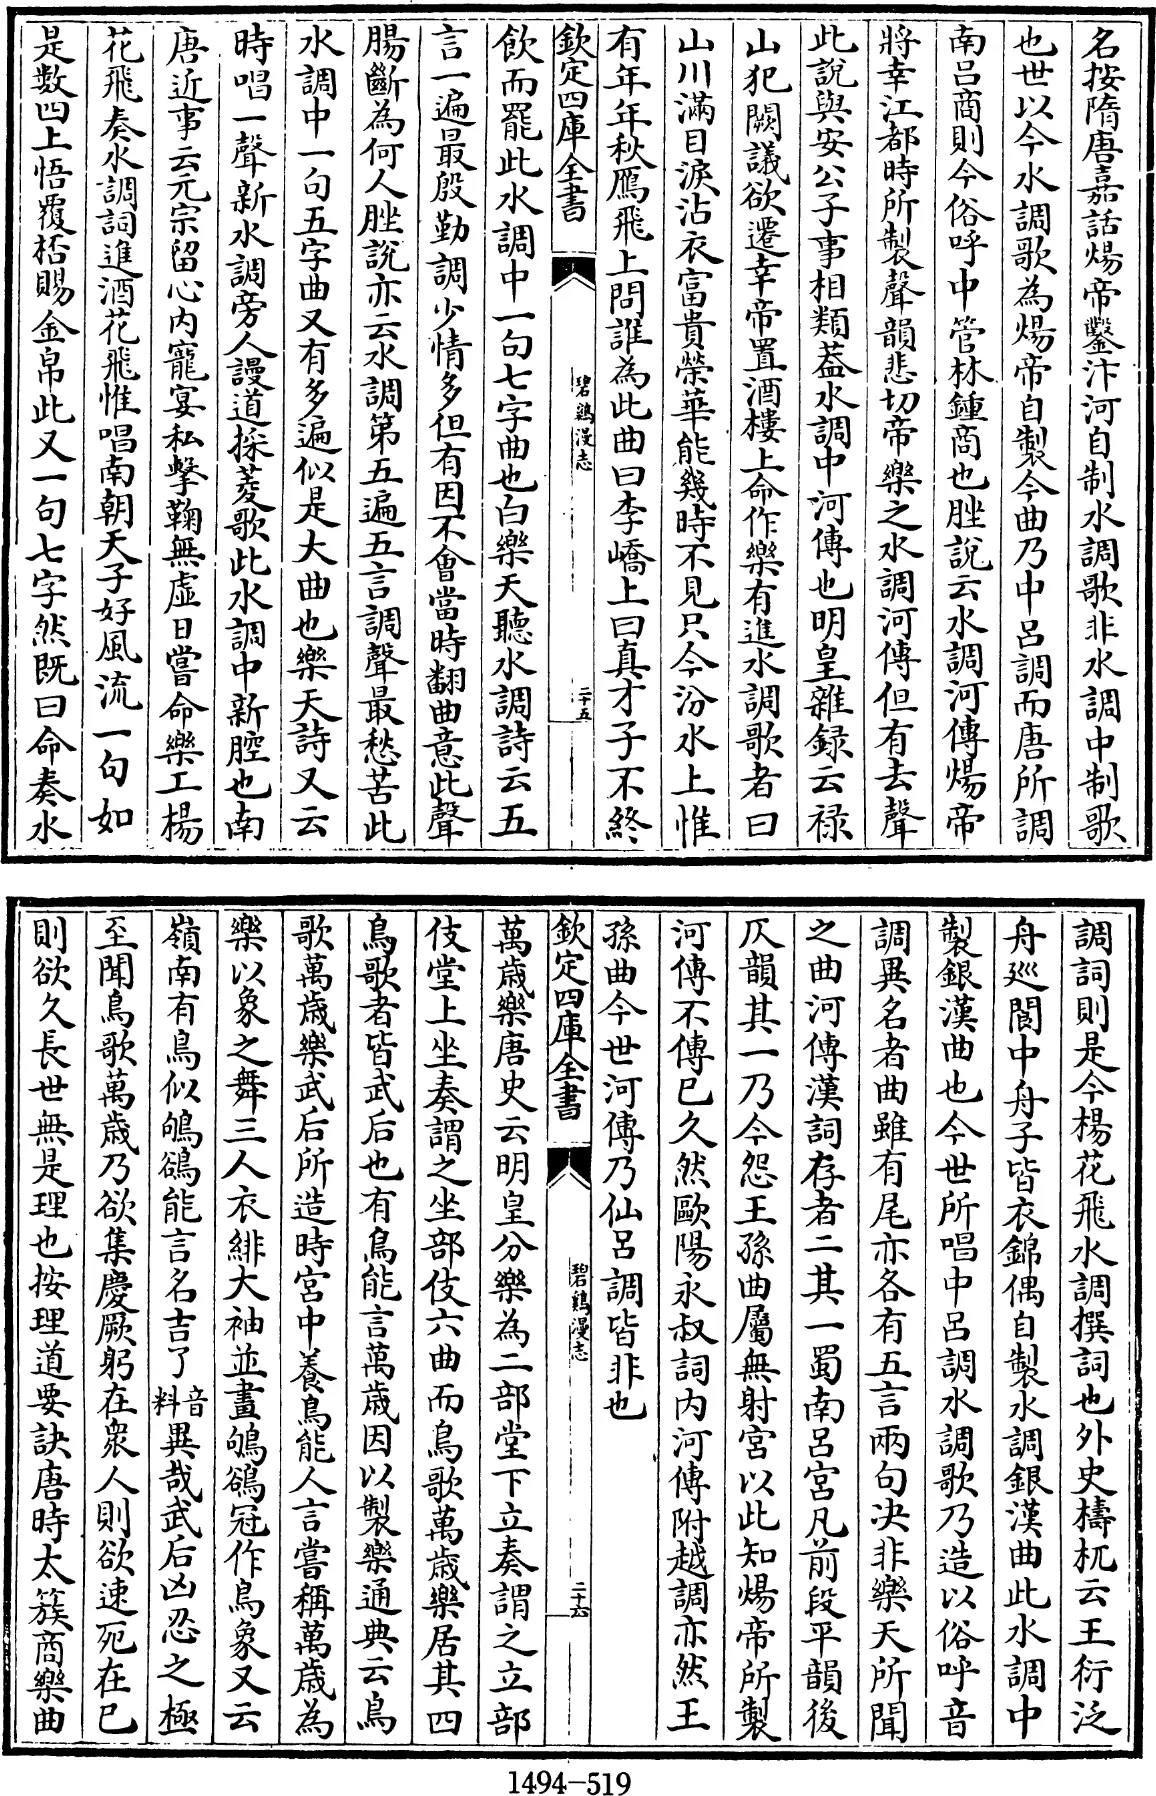 名按隋唐嘉話煬帝鑿汴河自制水調歌非水調中制歌
也世以今水調歌為煬帝自製今曲乃中呂調而唐所謂
南呂商則今俗呼中管林鍾商也脞說云水調河傳煬帝
將幸江都時所製聲韻悲切帝樂之水調河傳但有去聲
此說與安公子事相類葢水調中河傳也明皇雜録云禄
山犯闕議欲遷幸帝置酒樓上命作樂有進水調歌者曰
山川滿目淚沾衣富貴榮華能幾時不見只今汾水上惟
有年年秋鴈飛上問誰為此曲曰李嶠上曰真才子不終
欽定四庫全書
碧鷄漫志
二十五
飲而罷此水調中一句七字曲也白樂天聽水調詩云五
言一遍最殷勤調少情多但有因不會當時翻曲意此聲
腸斷為何人脞說亦云水調第五遍五言調聲最愁苦此
水調中一句五字曲又有多遍似是大曲也樂天詩又云
時唱一聲新水調旁人謾道採菱歌此水調中新腔也南
唐近事云元宗留心內寵宴私擊鞠無虛日嘗命樂工楊
花飛奏水調詞進酒花飛惟唱南朝天子好風流一句如
是數四上悟覆桮賜金帛此又一句七字然既曰命奏水
調詞則是今楊花飛水調撰詞也外史檮杌云王衍泛
舟巡閬中舟子皆衣錦偶自製水調銀漢曲此水調中
製銀漢曲也今世所唱中呂調水調歌乃造以俗呼音
調異名者曲雖有尾亦各有五言兩句决非樂天所聞
之曲河傳漢詞存者二其一蜀南呂宮凡前段平韻後
仄韻其一乃今怨王孫曲屬無射宮以此知煬帝所製
河傳不傳已久然歐陽永叔詞內河傳附越調亦然王
孫曲今世河傳乃仙呂調皆非也
欽定四庫全書
碧鷄漫志
二十六
萬歲樂唐史云明皇分樂為二部堂下立奏謂之立部
伎堂上坐奏謂之坐部伎六曲而鳥歌萬歲樂居其四
鳥歌者皆武后也有鳥能言萬歲因以製樂通典云鳥
歌萬歲樂武后所造時宮中養鳥能人言嘗稱萬歲為
樂以象之舞三人衣緋大袖並畫鴝鵒冠作鳥象又云
嶺南有鳥似鴝鵒能言名吉了音料異哉武后凶忍之極
至聞鳥歌萬歲乃欲集慶厥躬在衆人則欲速死在已
則欲久長世無是理也按理道要訣唐時太簇商樂曲
1494-519